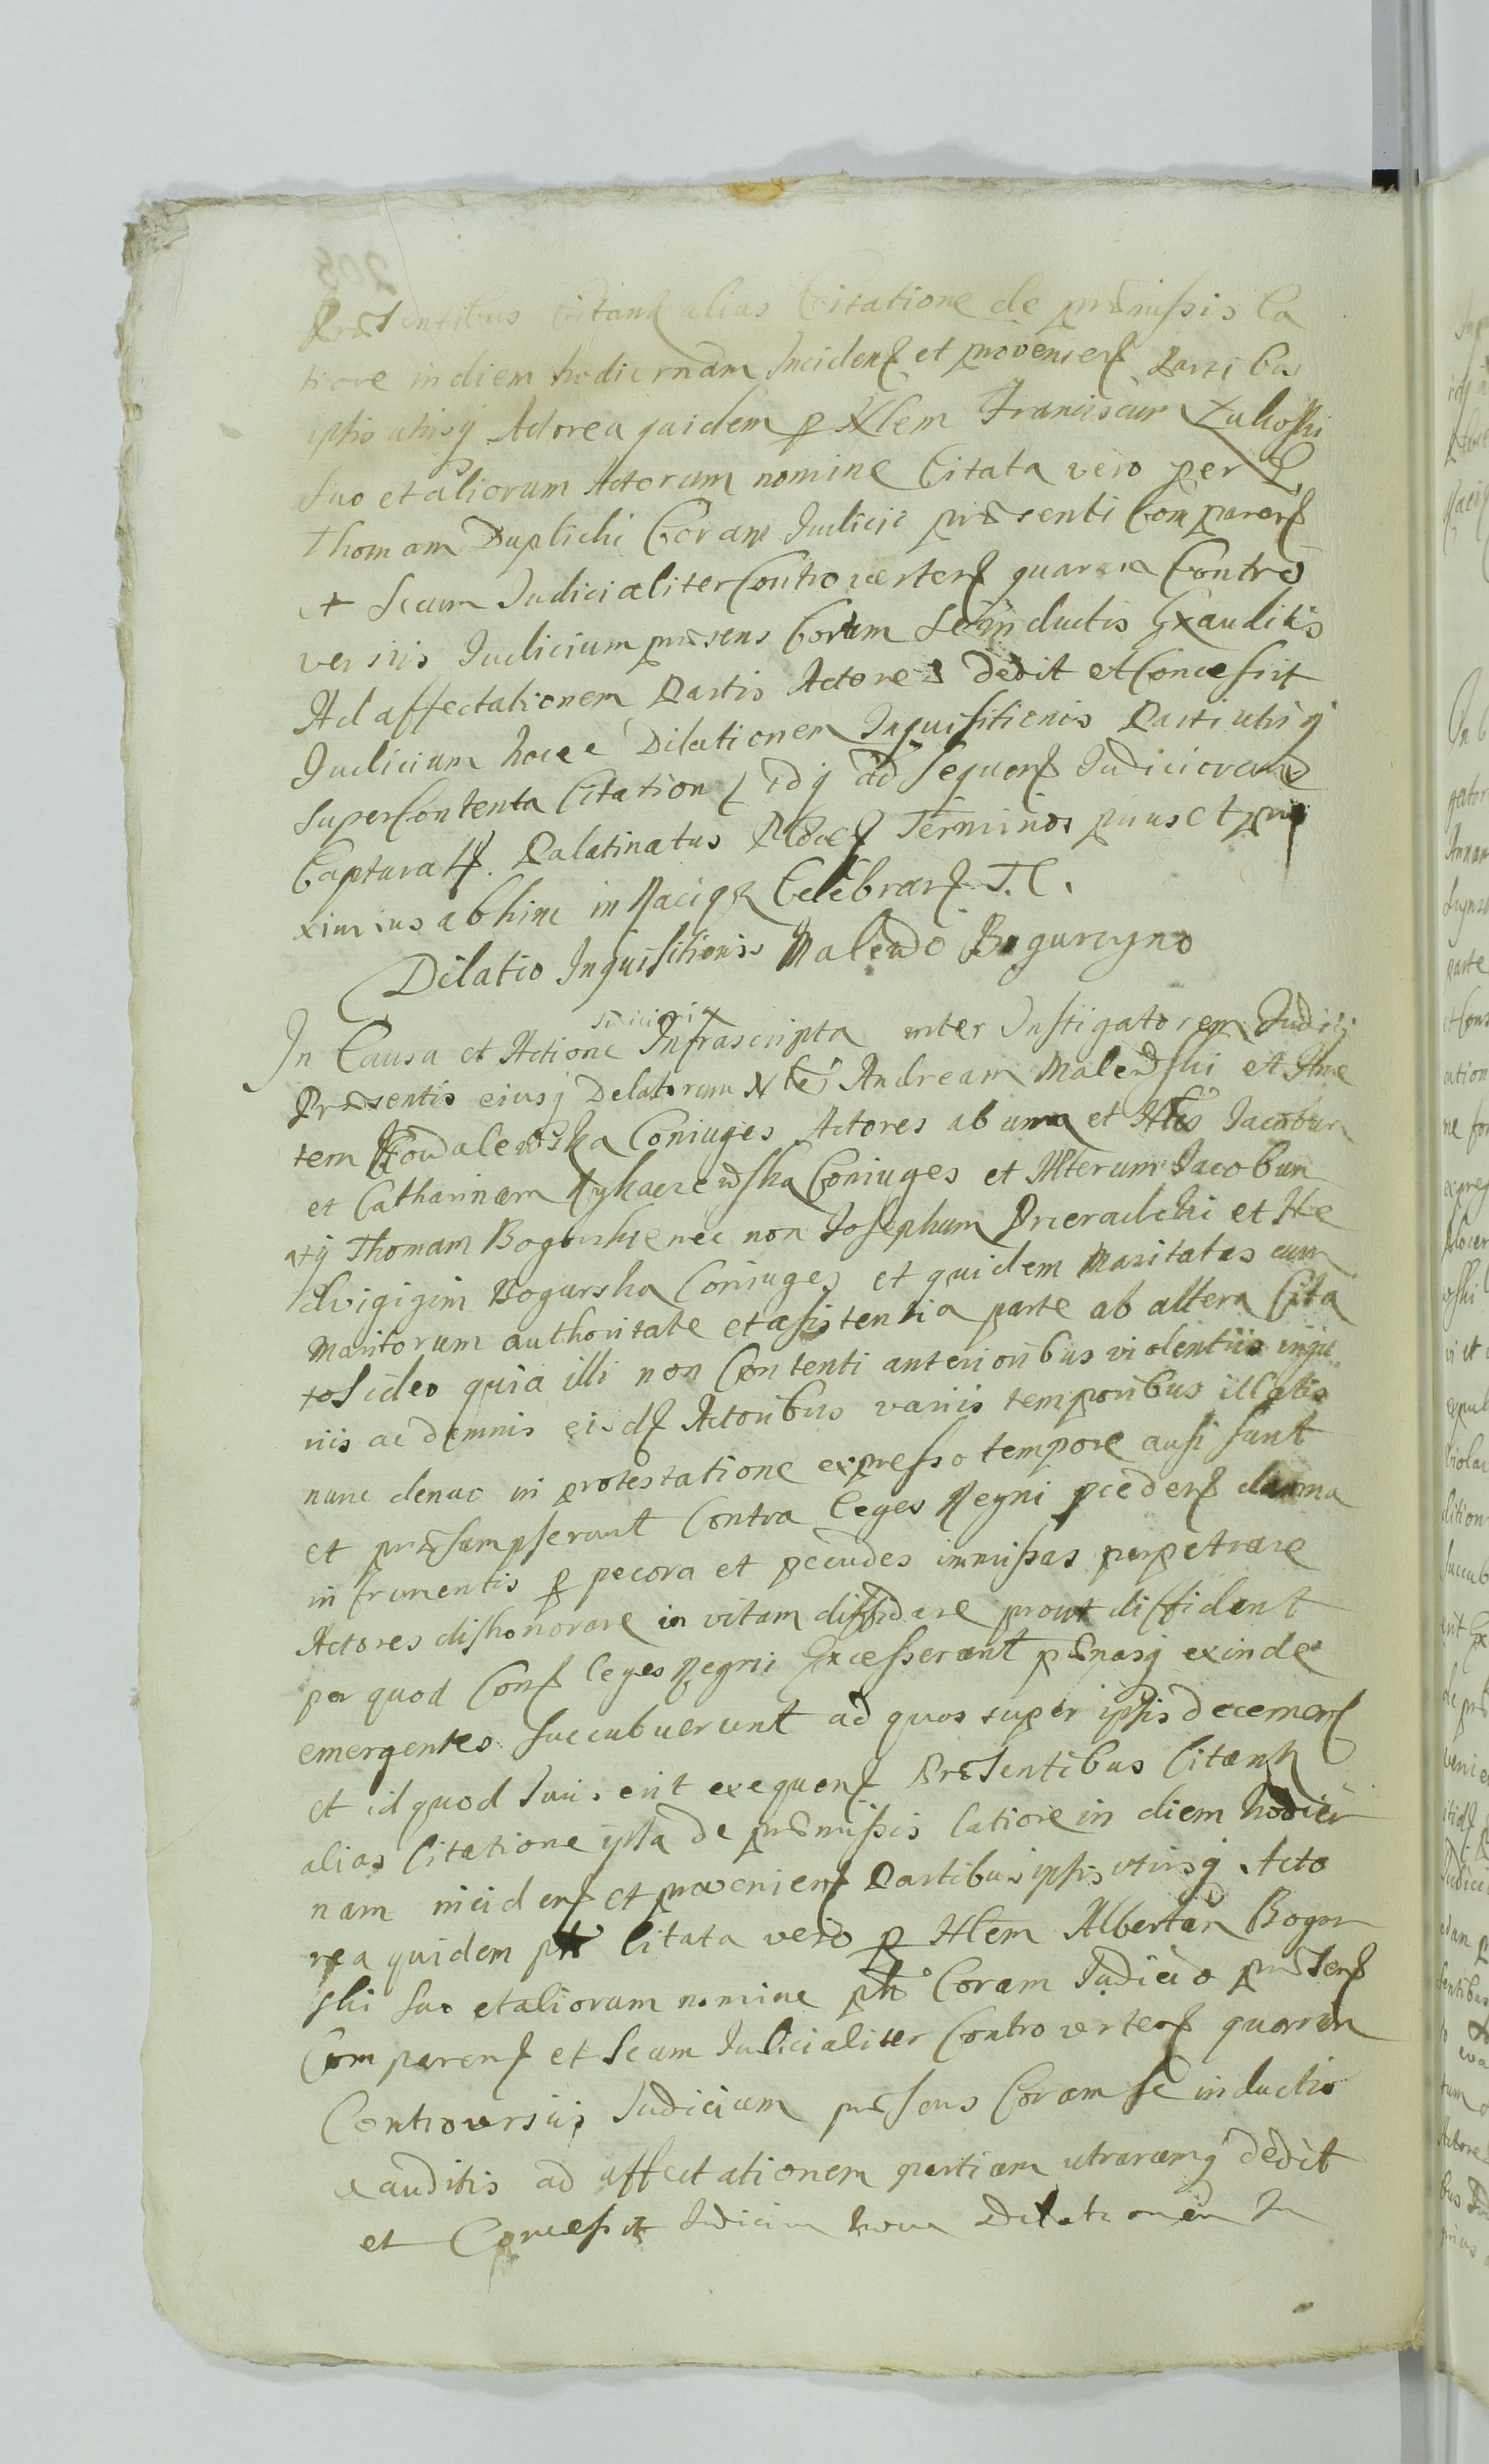 Præsentibus Citans alias Citatione de præmissis la
tiore in diem hodiernam Inciden et provenien Partibus
ipsis utrisq Actorea quidem p Nlem Franciscum Zalioski
suo et aliorum Actorum nomine Citata vero per
Thomam Duplicki Coram Iudicii præsenti Comparen
et Secum Iudicialiter Controverten quarum Contro
versiis Iudicium præsens Coram se inductis Exauditis
Ad affectationem Partis Actoreæ dedit et Concessit
Iudicium hocce Dilationem Inquisitionis Parti utrisq
super Contenta Citation idq ad sequen Iudiciorum
Captural. Palatinatus Terminos prius et pro
ximius ab hinc in Raciąż Celebran T. C.
Dilatio Inquisitionis Malewo Bogurzyno
Iudiciaria
In Causa et Actione Infrascripta inter Instigatorem Iudicii
Præsentis eiusq Delatorum Andream Malewski et Anne
tem Kowalewska Coniuges Actores ab una et Nles Iacobum
et Catharinam Rykaczewska Coniuges et Alterum Iacobum
atq Thomam Bogurskie nec non Iosephum Przeradzki et He
dvigigim Bogurska Coniuges et quidem Maritatas cum
Maritorum authoritate et assistentia parte ab altera Cita
tos ideo quia illi non Contenti anterioribus violentiis inju
riis ac damnis eisd Actoribus variis temporibus illatis
nunc denuo in protestatione expresso tempore ausi sunt
et præsumpserunt Contra leges Regni præden damna
in frumentis p pecora et pecudes immissas perpetrare
Actores dishonorare in vitam diffidare prout diffident
per quod Con leges Regni Excesserunt pænasq exinde
emergentes succubuerunt ad quos super ipsis decernen
et id quod Iuris erit exequen Præsentibus Citans
alias Citatione ipsa de præmissis latiore in diem hodier
nam inciden et provenien Partibus ipsis utrisq Acto
rea quidem Citata vero p Nlem Albertum Bogur
ski suo et aliorum nomine Coram Iudicio præsen
Comparen et Secum Iudicialiter Controverten quarum
Controversiis Iudicium præsens Coram se inductis
exauditis ad affectationem partium utrarumq dedit
et Concessit Iudicium hocce Dilationem In